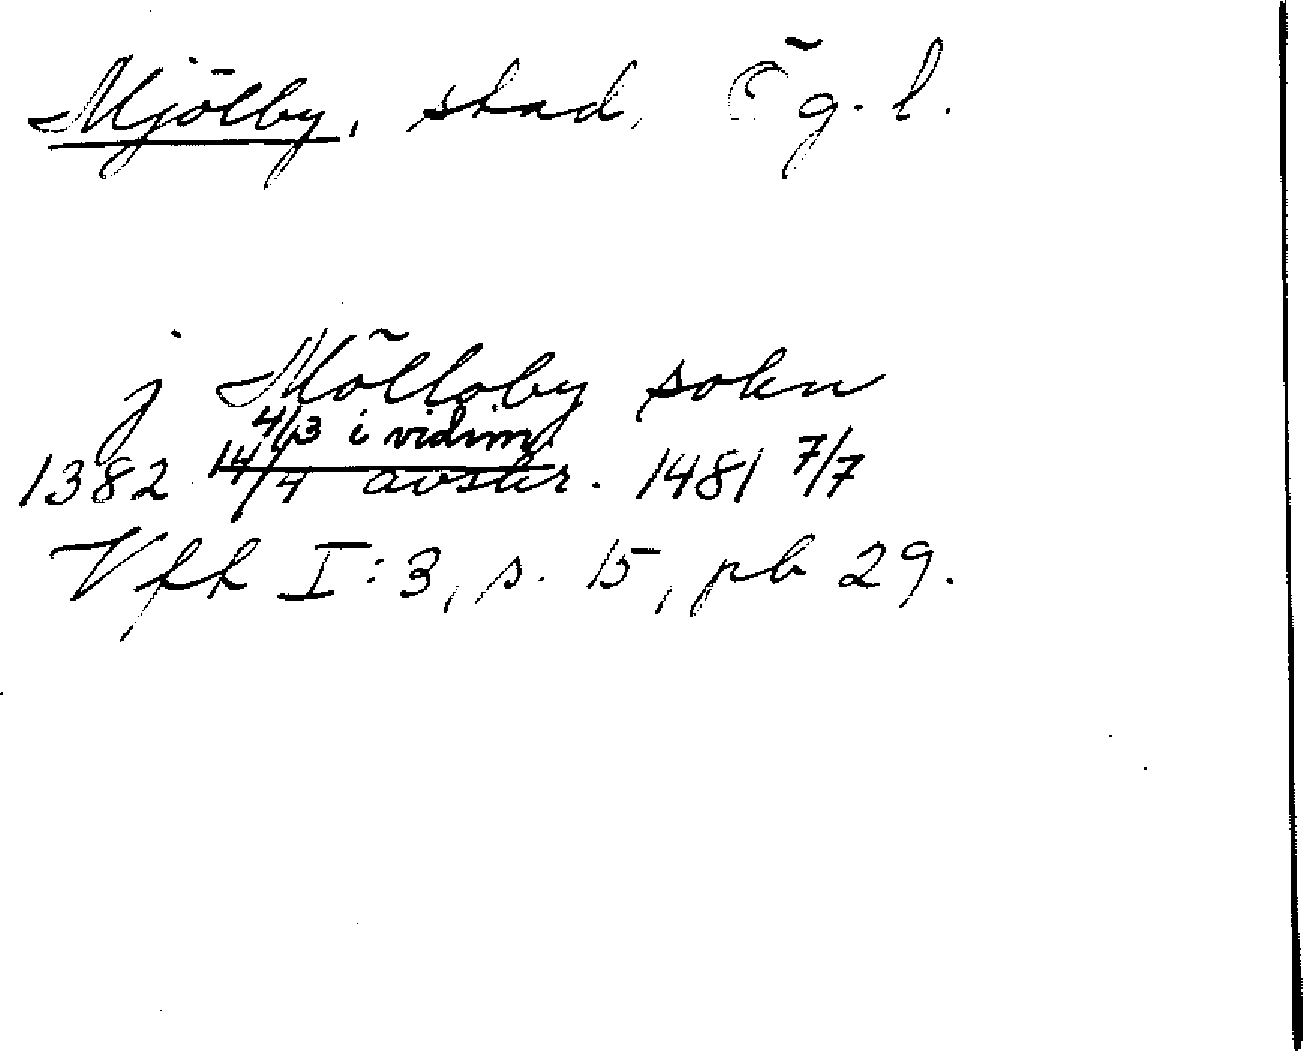 Mjölby, stad, Ög. l.
j Mölloby sokn
4/3 i vidim
1382 14/4 avskr. 1481 7/7
Vfh I:3, s. 15, pb 29.